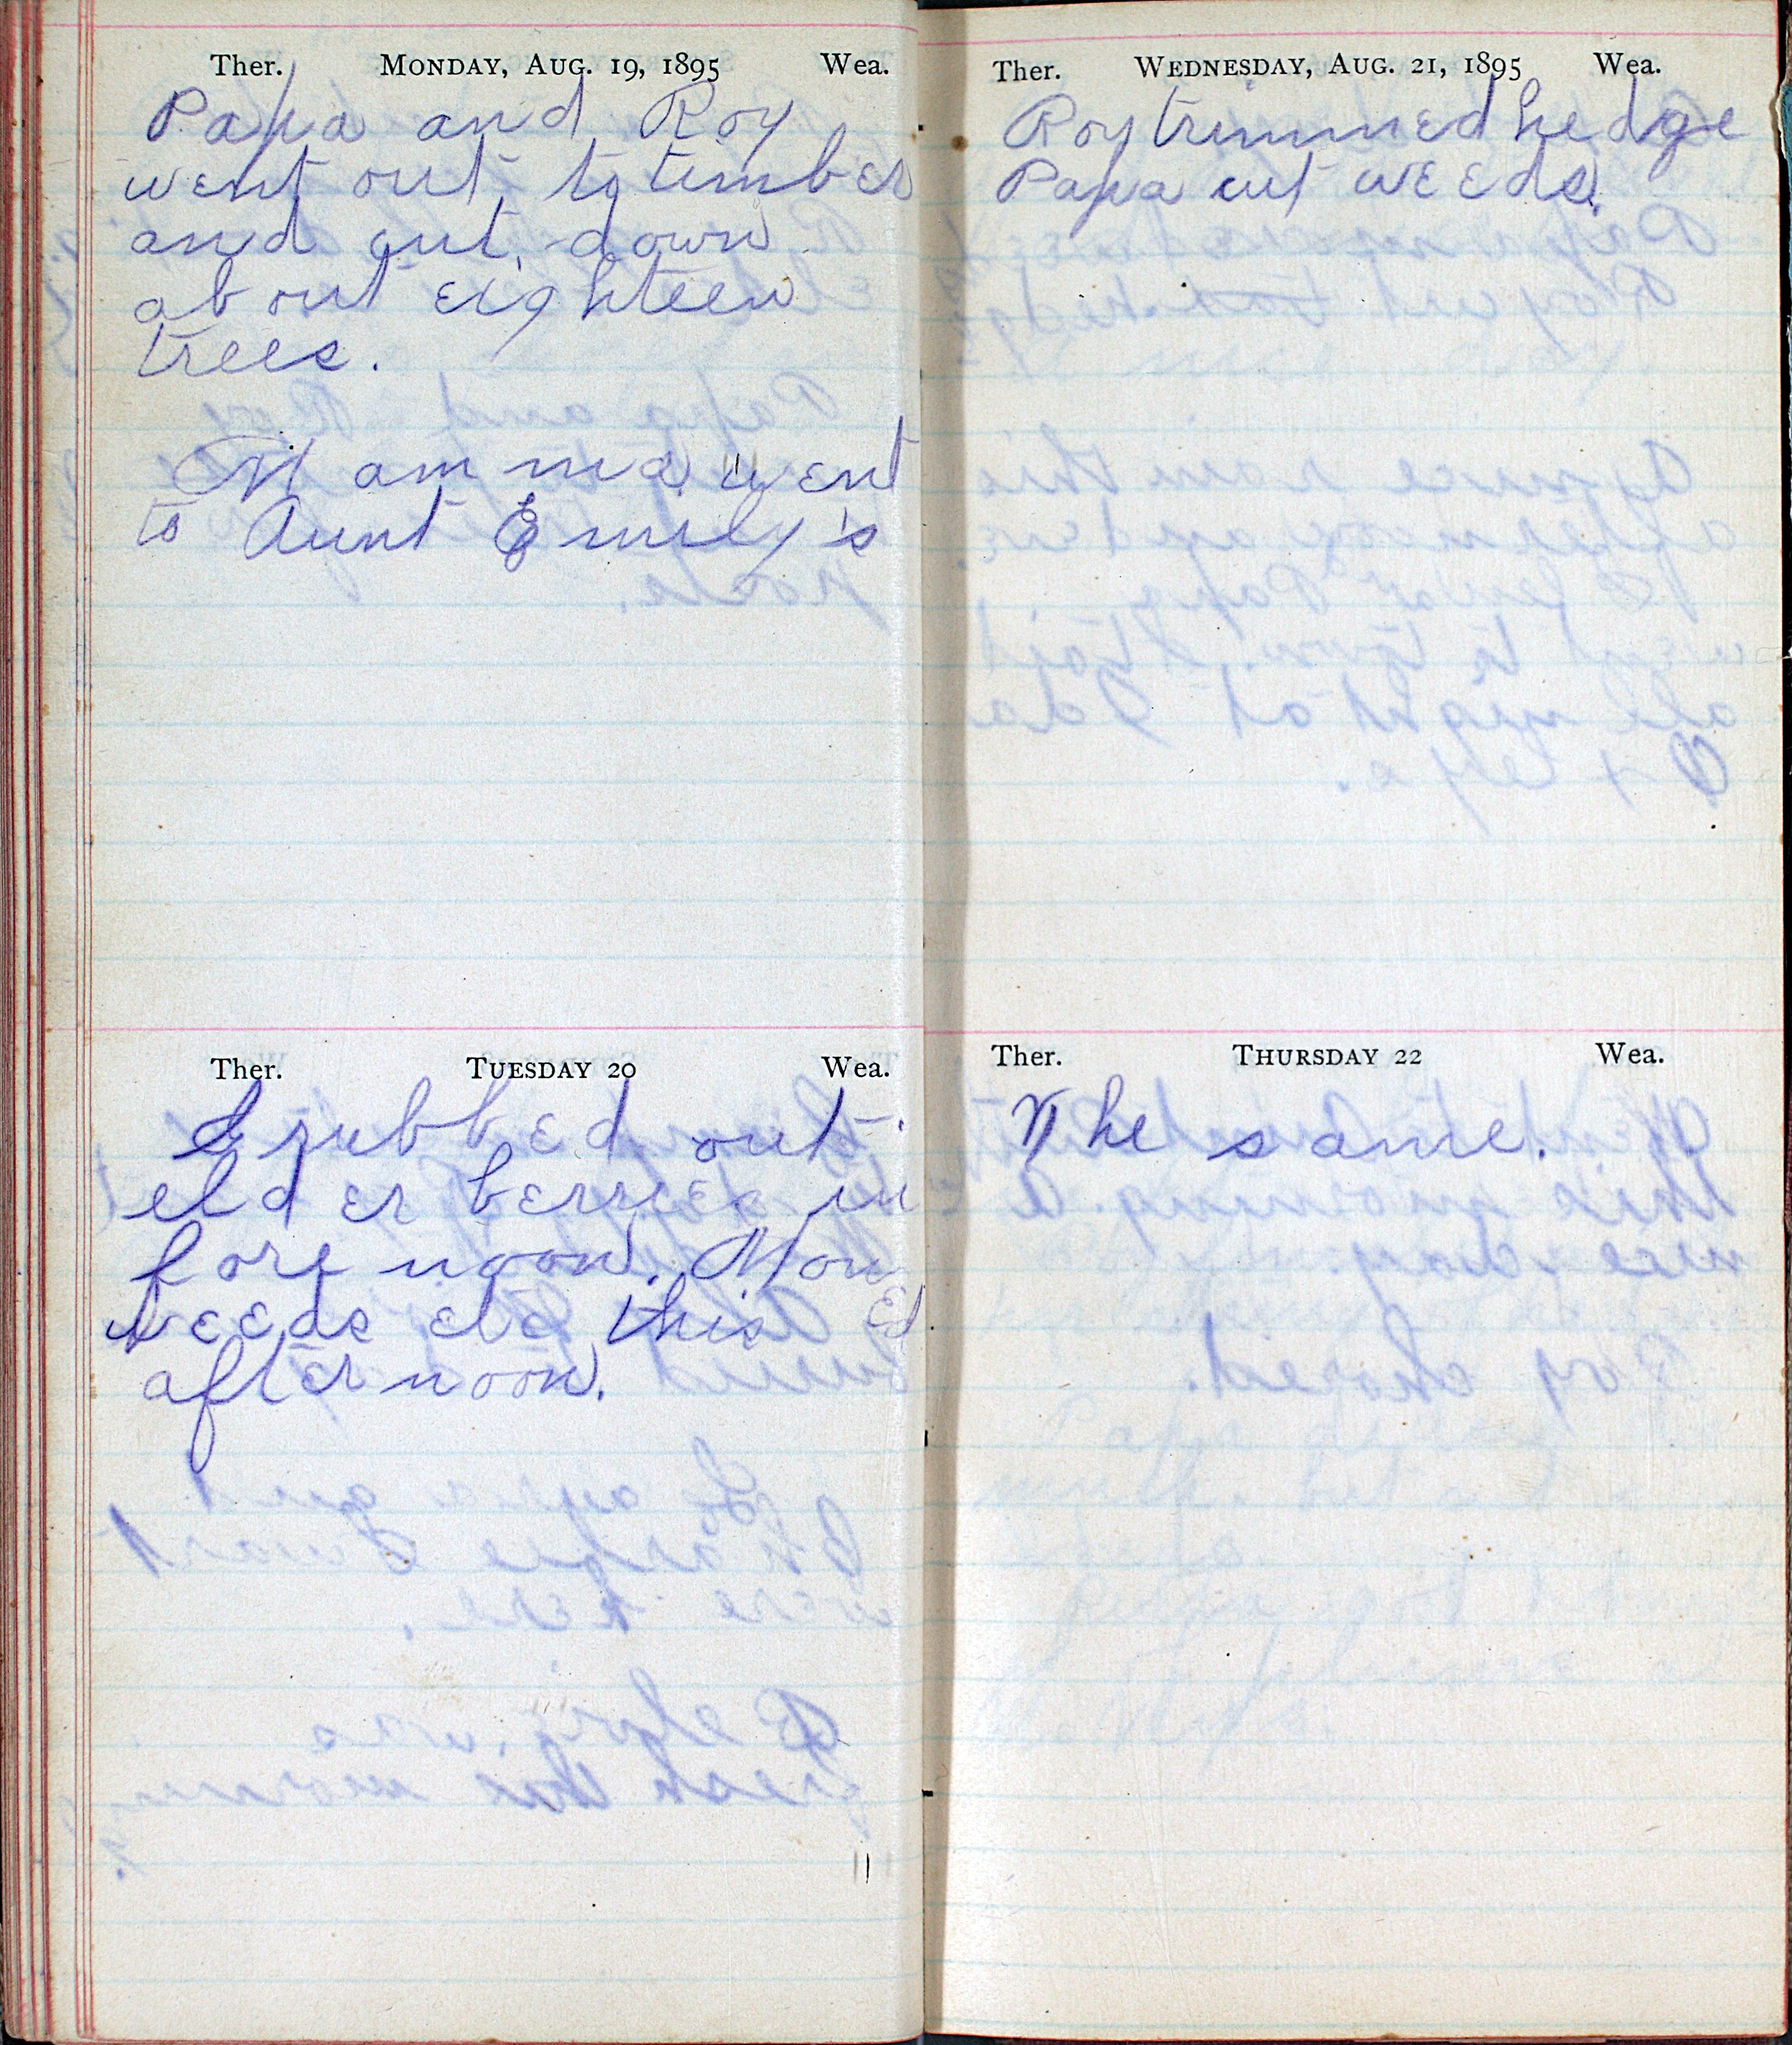 Ther. Monday, Aug. 19, 1895 Wea.
Papa and Roy
went out to timber
and cut down
about eighteen
trees.
Mamma went
to Aunt Emily's
Ther. Tuesday 20 Wea.
Grubbed out
elder berries in
fore noon. Mow
ed
weeds etc this
afternoon.
Ther. Wednesday, Aug. 21, 1895 Wea.
Roy trimmed hedge
Papa cut weeds.
Ther. Thursday 22 Wea.
The same.